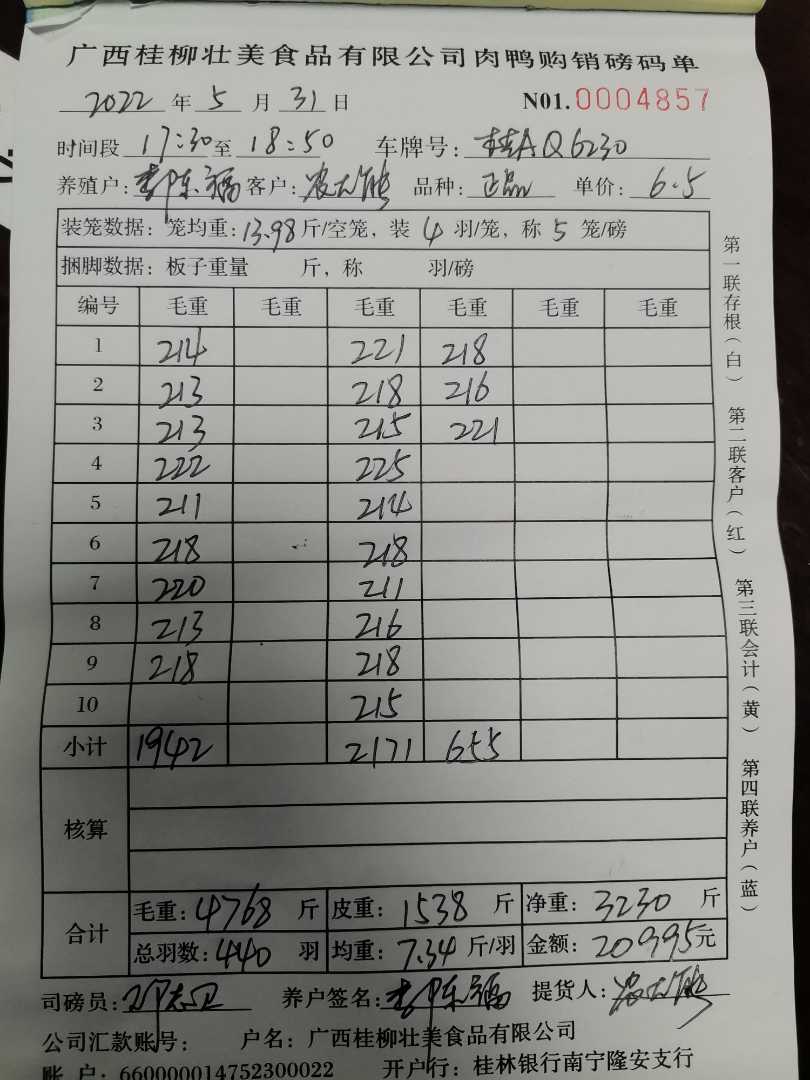 广西桂柳壮美食品有限公司肉鸭购销磅码单
2022 年 5 月 31 日 N01.0004857
时间段 17:30 至 18:50 车牌号: 桂AQ6230
养殖户: 客户: 品种: 正品 单价: 6.5
装笼数据: 笼均重: 13.98 斤/空笼, 装 4 羽/笼, 称 5 笼/磅
捆脚数据: 板子重量 斤, 称 羽/磅
编号 毛重 毛重 毛重 毛重 毛重 毛重
1 214 221 218
2 213 218 216
3 213 215 221
4 222 225
5 211 214
6 218 218
7 220 211
8 213 216
9 218 218
10 215
小计 1942 2171 655
核算
合计
毛重: 4768 斤 皮重: 1538 斤 净重: 3230 斤
总羽数: 440 羽 均重: 7.34 斤/羽 金额: 20995 元
司磅员: 养户签名: 提货人:
公司汇款账号: 户名: 广西桂柳壮美食品有限公司
账 户: 660000014752300022 开户行: 桂林银行南宁隆安支行
第一联存根(白) 第二联客户(红) 第三联会计(黄) 第四联养户(蓝)